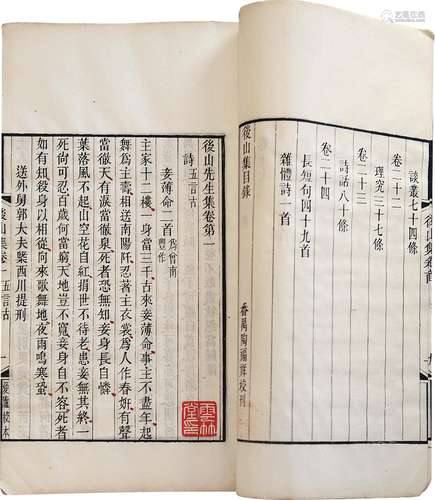 艺高在线
後山集卷首
談叢七十四條
卷二十二
理究三十七條
卷二十三
詩話八十條
卷二十四
長短句四十九首
雜體詩一首
後山集目錄
番禺陶福祥校刊
後山先生集卷第一
詩五言古
妾薄命二首為曾南豐作
主家十二樓一身當三千古來妾薄命事主不盡年起
舞爲主壽相送南陽阡忍著主衣裳爲人作春妍有聲
當徹天有淚當徹泉死者恐無知妾身長自憐
葉落風不起山空花自紅捐世不待老惠妾無其終一
死尙可忍百歲何當窮天地豈不寬妾身自不容死者
如有知殺身以相從向來歌舞地夜雨鳴寒蛩
送外舅郭大夫槩西川提刑
後山集卷一
五言古
一
校本
雲林堂印